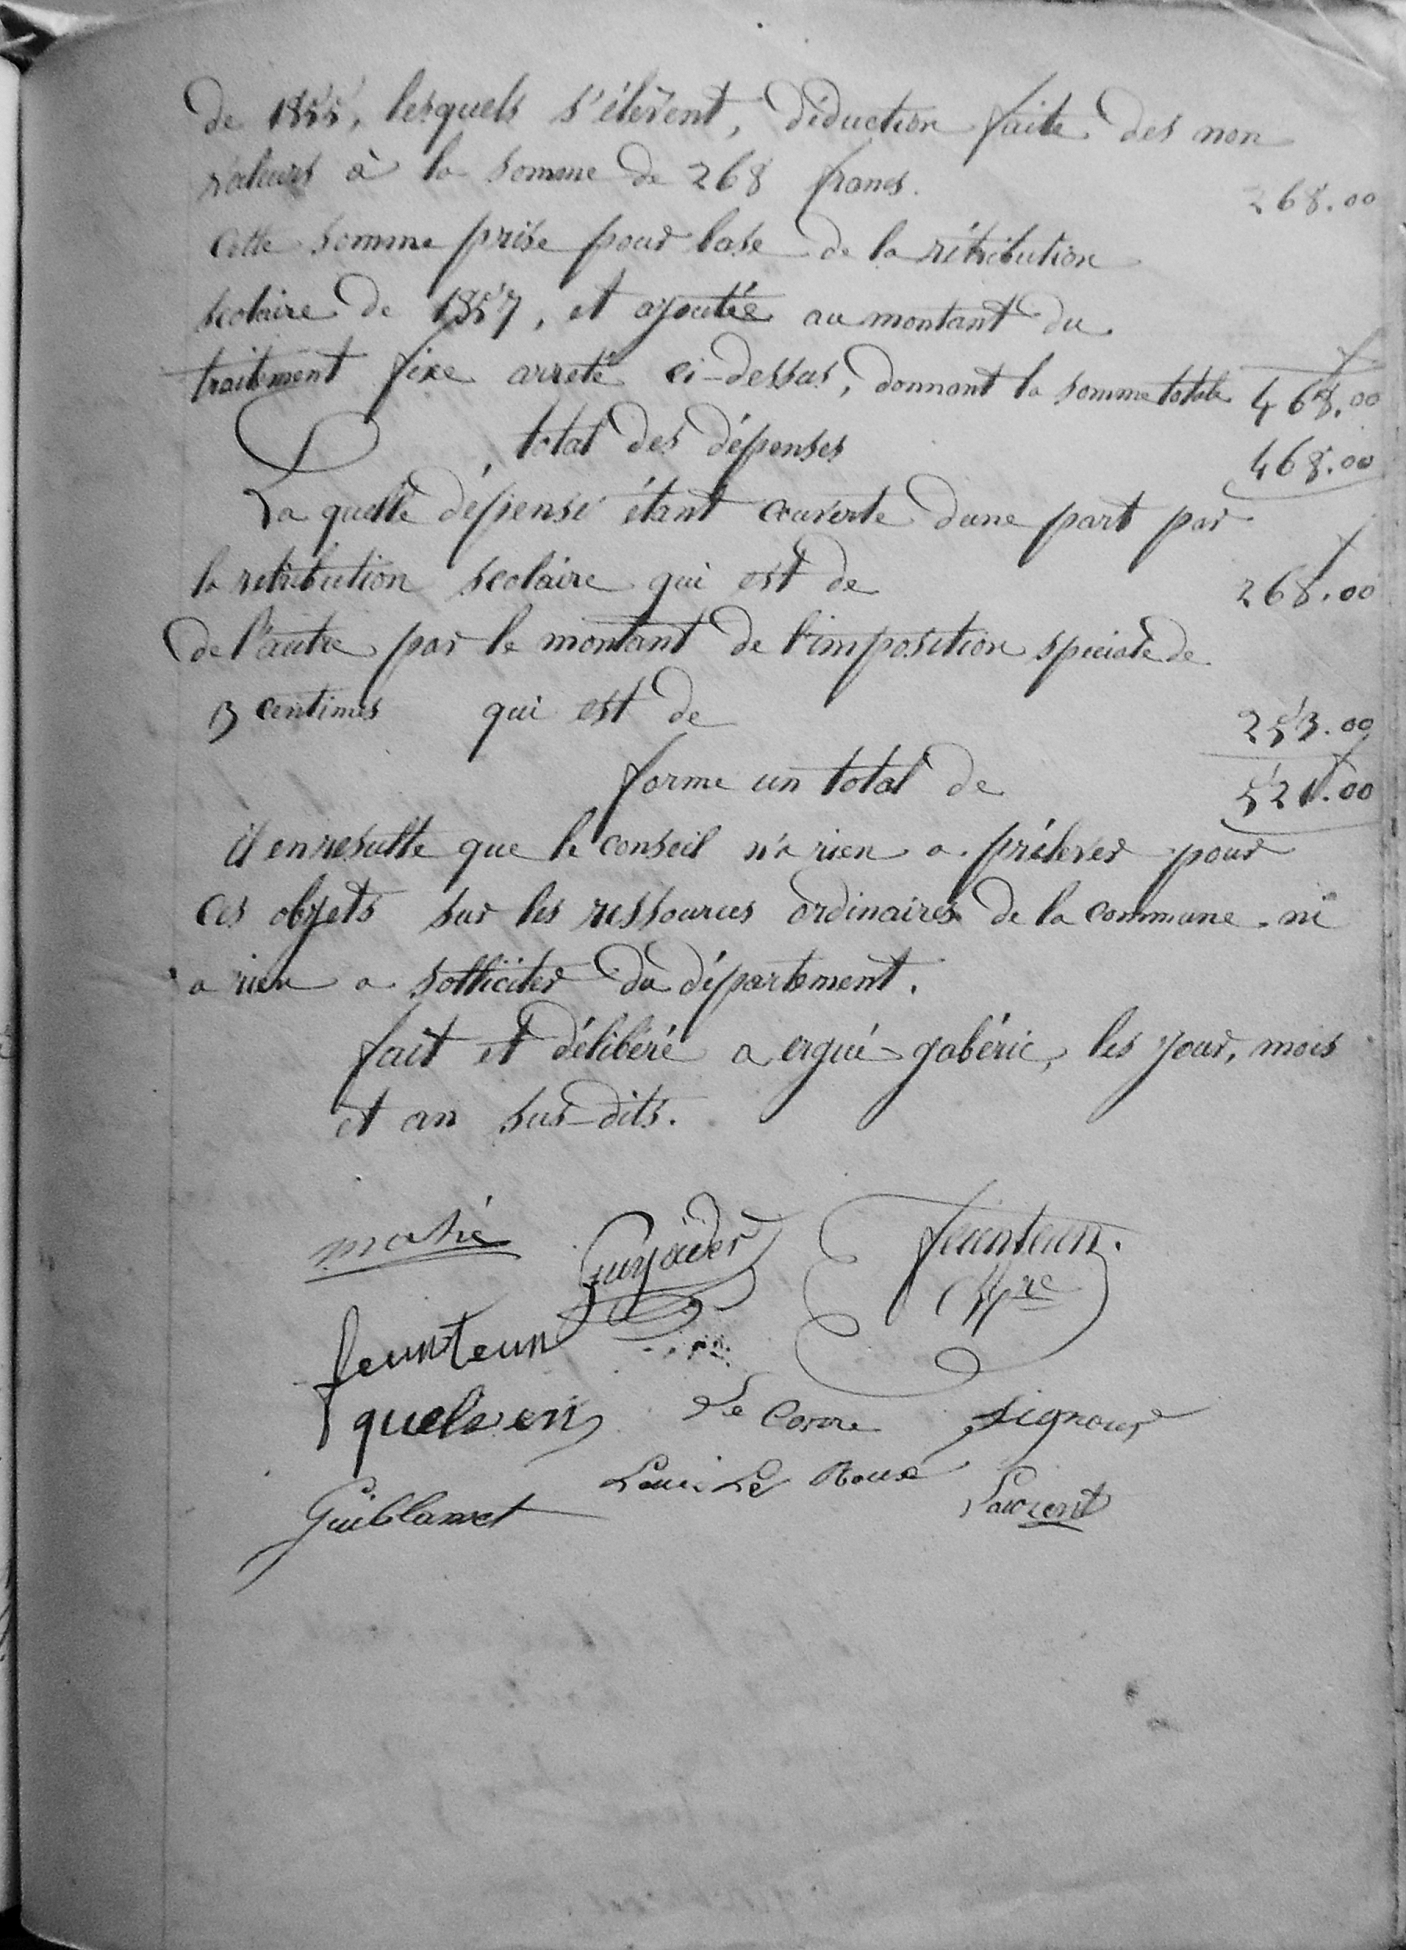 de 1855, lesquels s'élèvent, déduction faite des non
valeurs à la somme de 268 francs. 268.00
cette somme prise pour base de la rétribution
scolaire de 1857, et ajoutée au montant du
traitement fixe arreté ci-dessus, donnant la somme totale 468.00
total des dépenses 468.00
La quelle dépense étant couverte dune part par
la retribution scolaire qui est de 268.00
de l'autre par le montant de l'imposition speciale de
3 centimes qui est de 253.00
forme un total de 521.00
il en resulte que le conseil n'a rien a préléver pour
ces objets sur les ressources ordinaires de la commune. ni
a rien a solliciter du département.
fait et délibéré a ergué-gabéric, les jour, mois
et an sus-dits.
mahé Guyader feunteun.
feunteun
quelven Le Corre Signour
Guiblamet Louis Le Roux Laurent